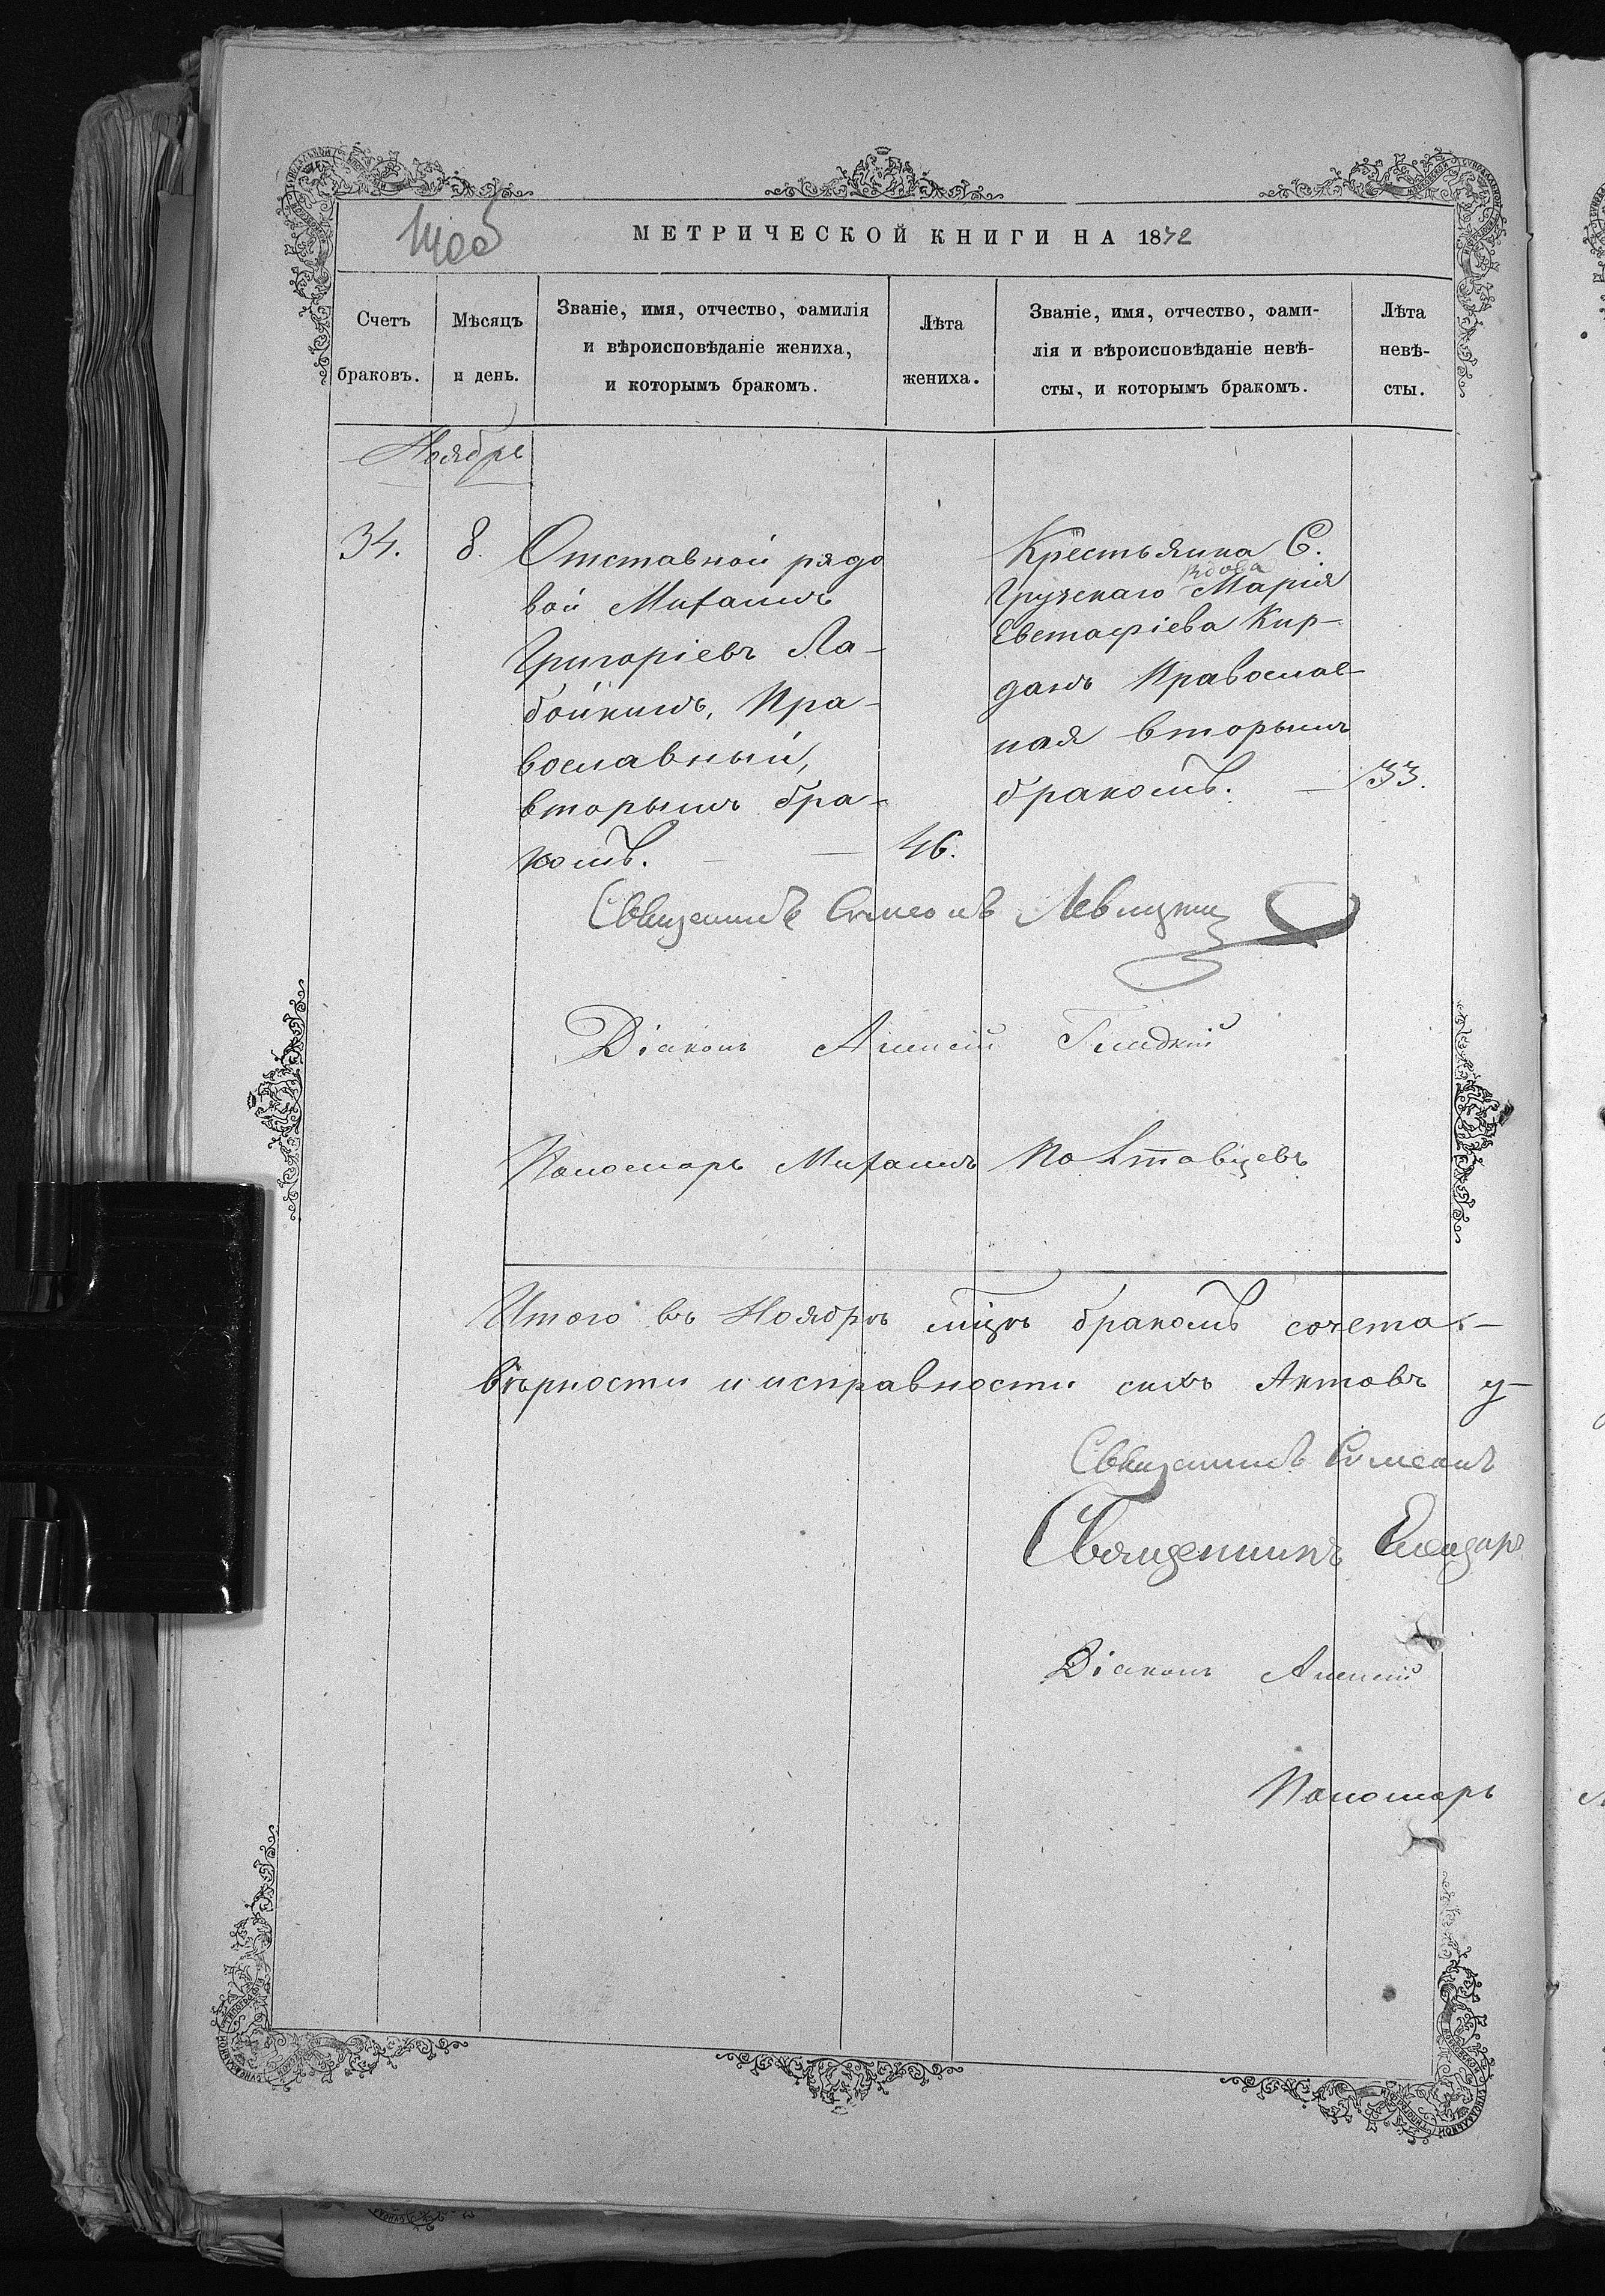 МЕТРИЧЕСКОЙ КНИГИ НА 1872
Счетъ браковъ.
Мѣсяцъ и день.
Званіе, имя, отчество, фамилія
и вѣроисповѣданіе жениха,
и которымъ бракомъ.
Лѣта жениха.
Званіе, имя, отчество, фами-
лія и вѣроисповѣданіе невѣ-
сты, и которымъ бракомъ.
Лѣта невѣ-
сты.
Ноябрь
34. 8.
Отставной рядо
вой Михаилъ
Григоріевъ Ла-
бойкинъ, Пра-
вославный,
вторымъ бра-
комъ. — — 46.
Крестьянка С.
вдова
Грузскаго Марія
Евстафіева Кир-
данъ Православ-
ная вторымъ
бракомъ. — 33.
Священникъ Симеонъ Левицкій
Діаконъ Алексій Гладкій
Пономарь Михаилъ Полтавцевъ
Итого въ Ноябрѣ мцѣ бракомъ сочета-
вѣрности и исправности сихъ Актовъ у-
Священникъ Симеонъ
Священникъ
Діаконъ Алексій
Пономарь